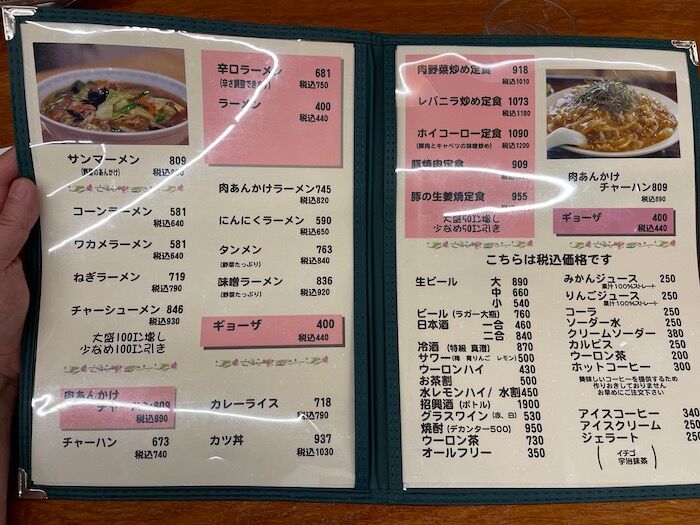 サンマーメン 809
(野菜のあんかけ) 税込890
コーンラーメン 581
税込640
ワカメラーメン 581
税込640
ねぎラーメン 719
税込790
チャーシューメン 846
税込930
大盛100円増し
少なめ100円引き
肉あんかけ
チャーハン809
税込890
チャーハン 673
税込740
辛口ラーメン 681
(辛さ調整できます) 税込750
ラーメン 400
税込440
肉あんかけラーメン745
税込820
にんにくラーメン 590
税込650
タンメン 763
(野菜たっぷり) 税込840
味噌ラーメン 836
(野菜たっぷり) 税込920
ギョーザ 400
税込440
カレーライス 718
税込790
カツ丼 937
税込1030
肉野菜炒め定食 918
税込1010
レバニラ炒め定食 1073
税込1180
ホイコーロー定食 1090
(豚肉とキャベツの味噌炒め) 税込1200
豚焼肉定食 909
豚の生姜焼定食 955
大盛50円増し
少なめ50円引き
肉あんかけ
チャーハン809
税込890
ギョーザ 400
税込440
こちらは税込価格です
生ビール 大 890
中 660
小 540
ビール (ラガー大瓶) 760
日本酒 一合 460
二合 840
冷酒 (特級 真澄) 870
サワー(梅 青りんご レモン)500
ウーロンハイ 430
お茶割 500
水レモンハイ/ 水割450
招興酒 (ボトル) 1900
グラスワイン (赤、白) 530
焼酎 (デカンター500) 950
ウーロン茶 730
オールフリー 350
みかんジュース 250
果汁100%ストレート
りんごジュース 250
果汁100%ストレート
コーラ 250
ソーダー水 250
クリームソーダー 380
カルピス 250
ウーロン茶 200
ホットコーヒー 300
美味しいコーヒーを提供するため
作りおきしておりません
お早めにご注文下さい
アイスコーヒー 340
アイスクリーム 250
ジェラート 250
(イチゴ
宇治抹茶)